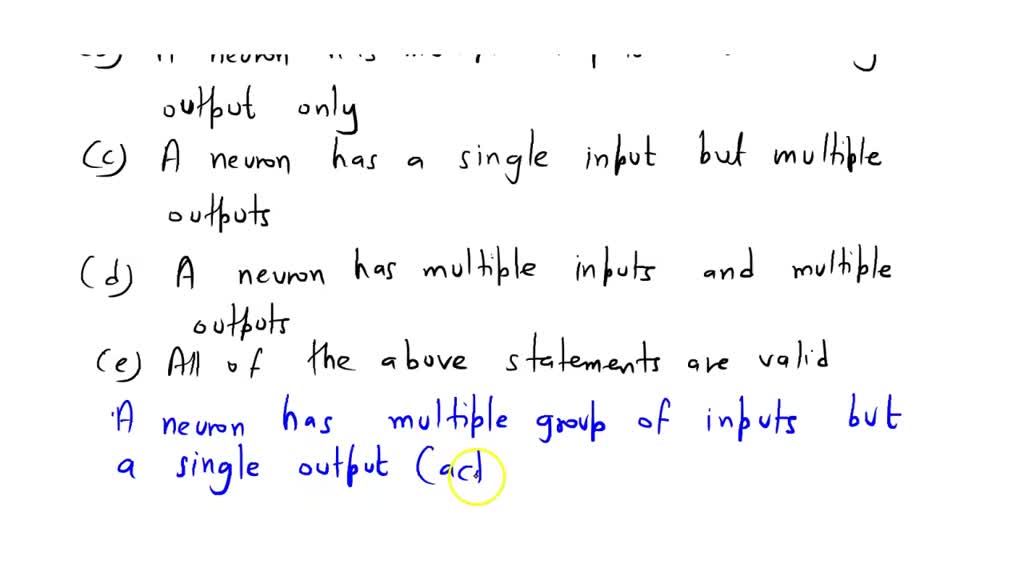 neuron has
output only
(c) A neuron has a single input but multiple
outputs
(d) A neuron has multiple inputs and multiple
outputs
(e) All of the above statements are valid
A neuron has multiple group of inputs but
a single output (act